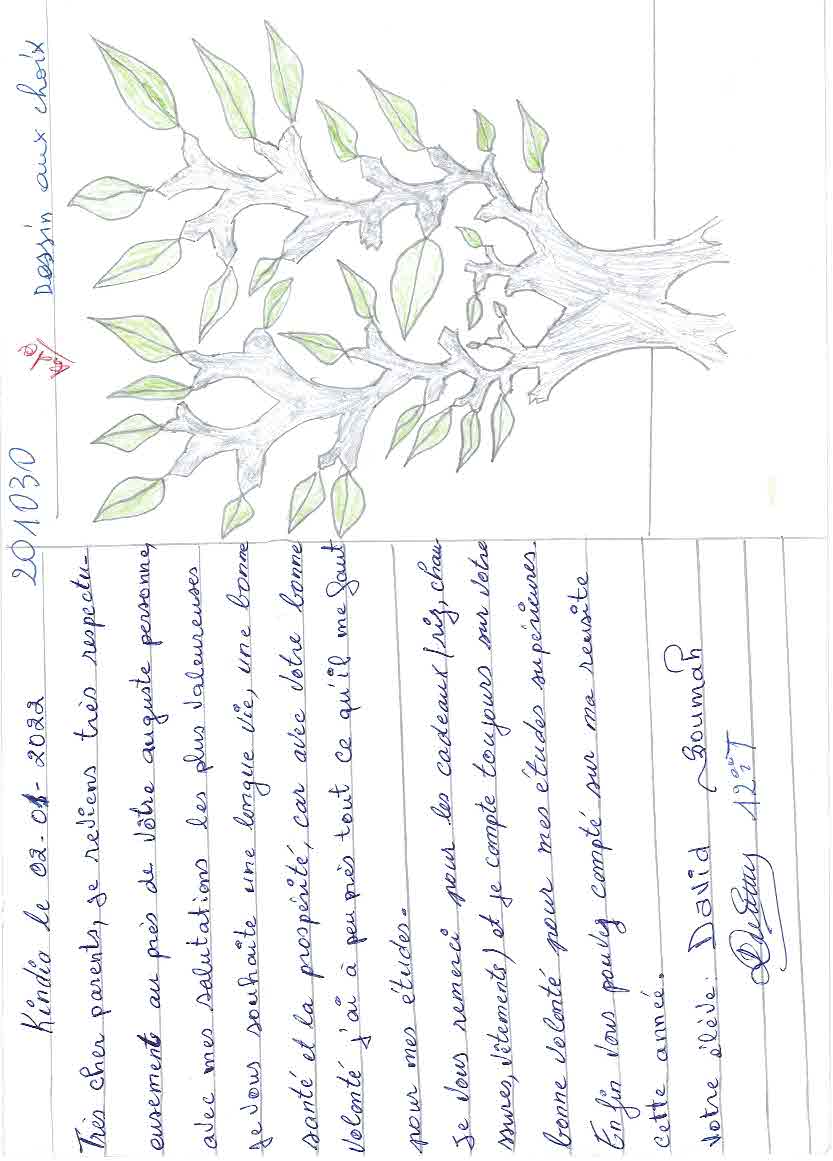 Kindia le 02-01-2022
201030
Dessin aux choix
Très cher parents, je reviens très respectu-
eusement au près de vôtre auguste personne,
avec mes salutations les plus valeureuses
je vous souhaite une longue vie, une bonne
santé et la prospérité, car avec vôtre bonne
volonté j'ai à peu près tout ce qu'il me faut
pour mes études.
Je vous remerci pour les cadeaux (riz, chau
ssures, vêtements) et je compte toujours sur vôtre
bonne volonté pour mes études supérieures.
En fin vous pouvez compté sur ma reusite
cette année.
votre élève: David Soumah